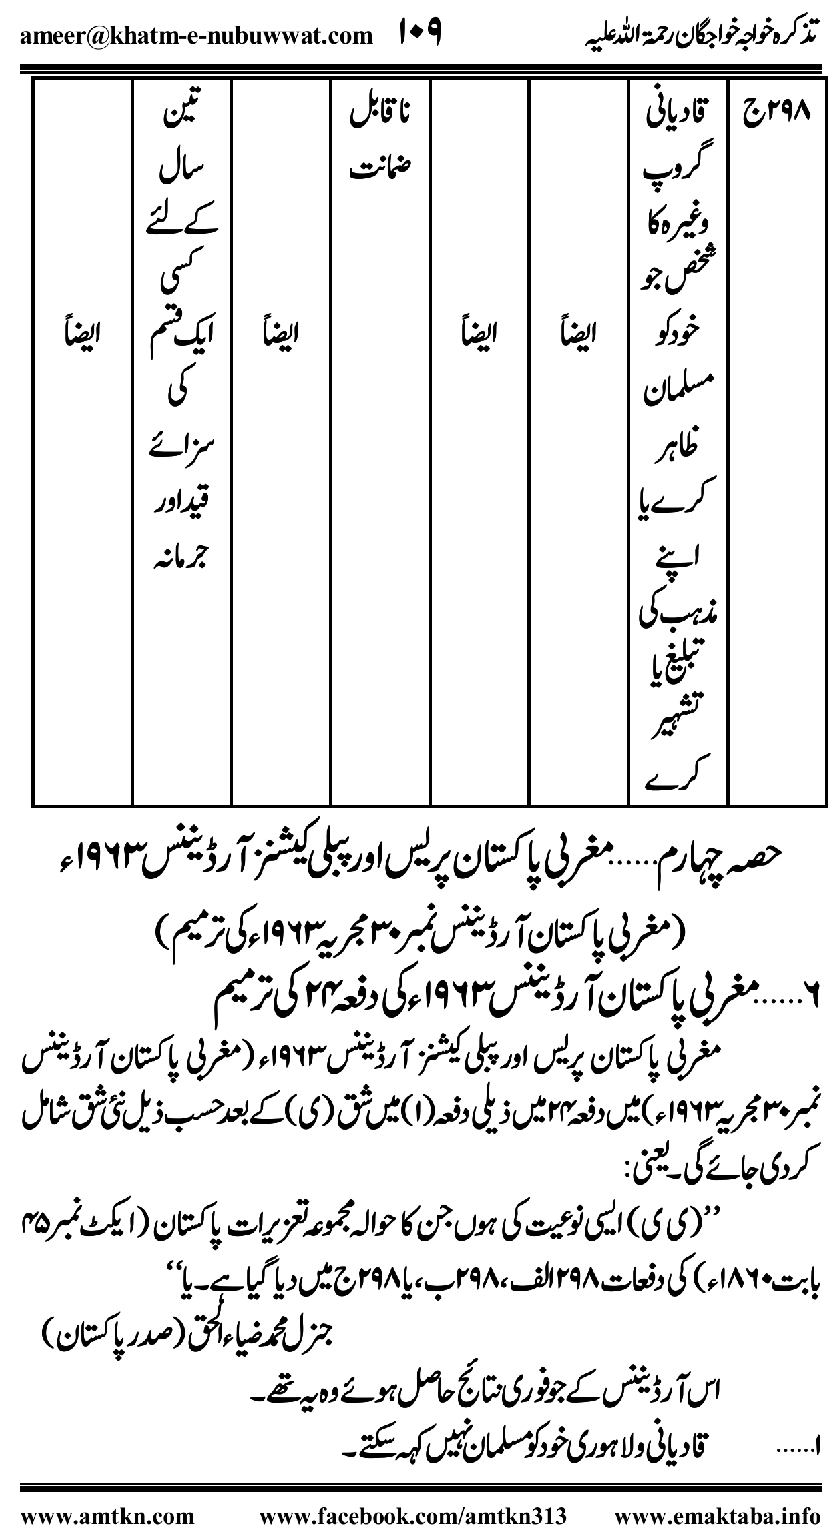 تذکرہ خواجہ خواجگان رحمۃ اللہ علیہ ۱۰۹ ameer@khatm-e-nubuwwat.com
۲۹۸ج
قادیانی
گروپ
وغیرہ کا
شخص جو
خود کو
مسلمان
ظاہر
کرے یا
اپنے
مذہب کی
تبلیغ یا
تشہیر
کرے
ایضاً
ایضاً
ناقابل
ضمانت
ایضاً
تین
سال
کے لئے
کسی
ایک قسم
کی
سزائے
قید اور
جرمانہ
ایضاً
حصہ چہارم......مغربی پاکستان پریس اور پبلی کیشنز آرڈیننس ۱۹۶۳ء
(مغربی پاکستان آرڈیننس نمبر ۳۰ مجریہ ۱۹۶۳ء کی ترمیم)
۶......مغربی پاکستان آرڈیننس ۱۹۶۳ء کی دفعہ ۲۴ کی ترمیم
مغربی پاکستان پریس اور پبلی کیشنز آرڈیننس ۱۹۶۳ء (مغربی پاکستان آرڈیننس
نمبر ۳۰ مجریہ ۱۹۶۳ء) میں دفعہ ۲۴ میں ذیلی دفعہ (۱) میں شق (ی) کے بعد حسب ذیل نئی شق شامل
کر دی جائے گی۔ یعنی:
”(ی ی) ایسی نوعیت کی ہوں جن کا حوالہ مجموعہ تعزیرات پاکستان (ایکٹ نمبر ۴۵
بابت ۱۸۶۰ء) کی دفعات ۲۹۸ الف، ۲۹۸ب، یا ۲۹۸ج میں دیا گیا ہے۔ یا“
جنرل محمد ضیاء الحق (صدر پاکستان)
اس آرڈیننس کے جو فوری نتائج حاصل ہوئے وہ یہ تھے۔
۱...... قادیانی ولاہوری خود کو مسلمان نہیں کہہ سکتے۔
www.amtkn.com www.facebook.com/amtkn313 www.emaktaba.info